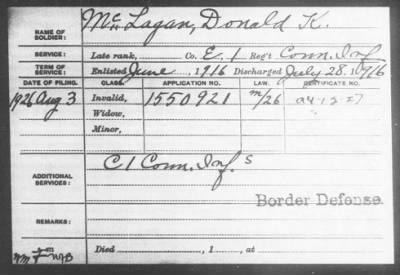 NAME OF SOLDIER: McLagan, Donald K.
SERVICE: Late rank, Co. E, 1 Reg't Conn. Inf
TERM OF SERVICE: Enlisted June, 1916 Discharged July 28, 1916
DATE OF FILING. CLASS. APPLICATION NO. LAW. CERTIFICATE NO.
1926 Aug 3 Invalid, 1550921 M/26 a4-15-27
Widow,
Minor,
ADDITIONAL SERVICES: C1 Conn. Inf. s
Border Defense
REMARKS:
Died , 1 , at